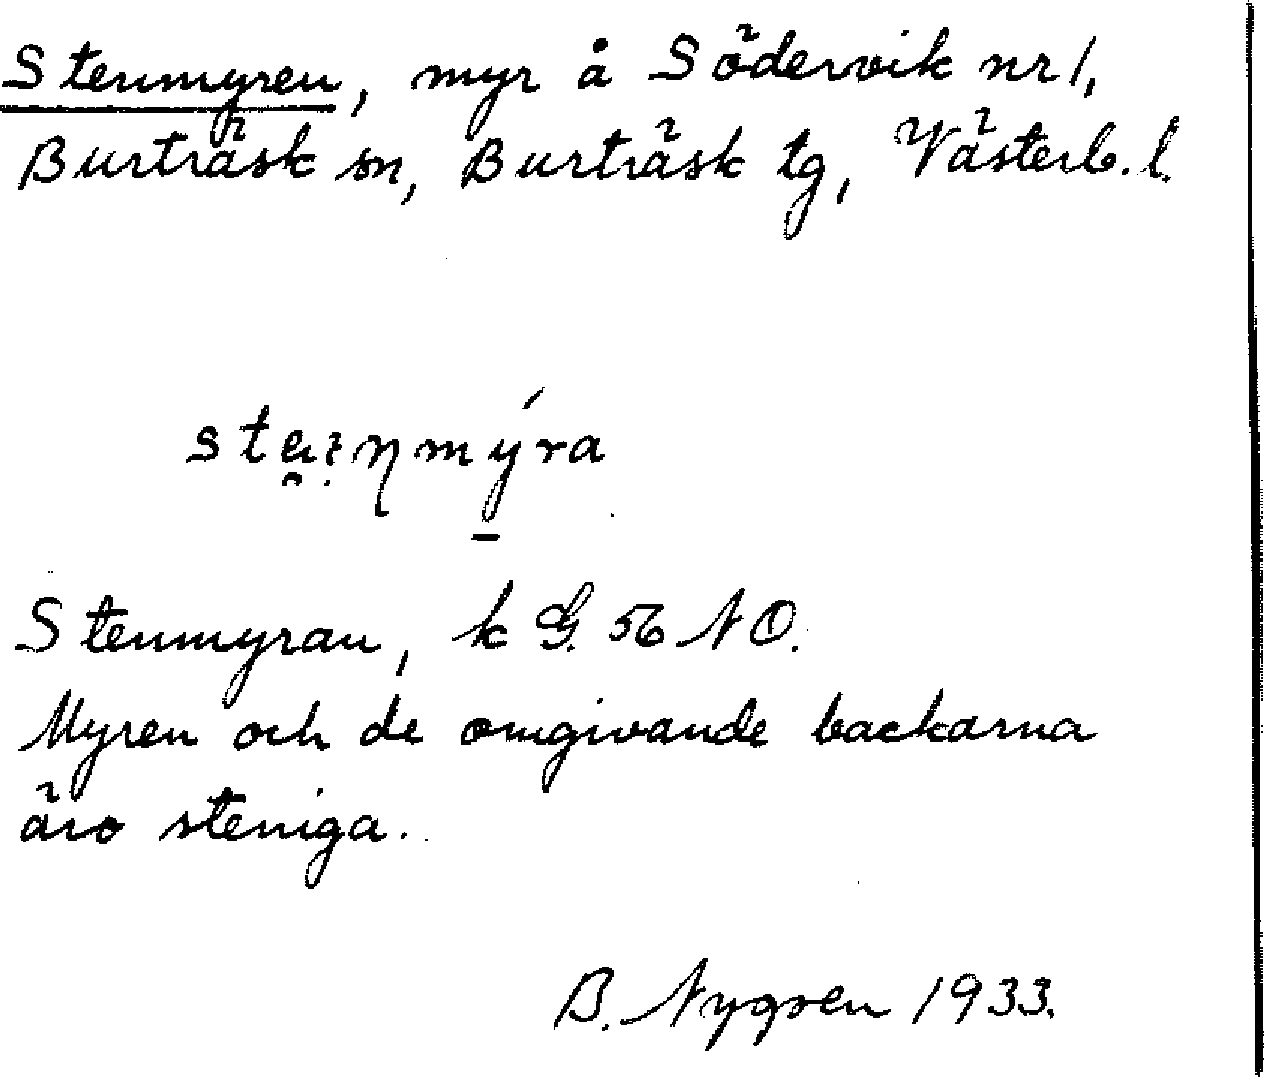 Stenmyren, myr å Södervik nr 1,
Burträsk sn, Burträsk tg, Västerb. l.
Stenmyran, k G. 56 NO.
Myren och de omgivande backarna
äro steniga.
B. Nygren 1933.